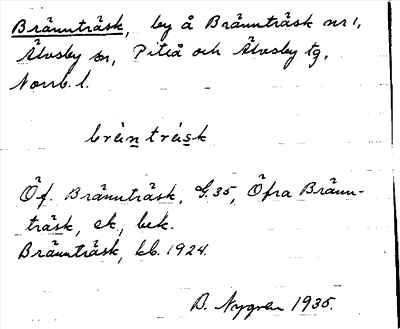 Brännträsk, by å Brännträsk nr 1,
Älvsby sn, Piteå och Älvsby tg,
Norrb. l.
Öf. Brännträsk, G. 35, Öfra Bränn-
träsk, ek, bek.
Brännträsk, kb. 1924.
B. Nygren 1935.